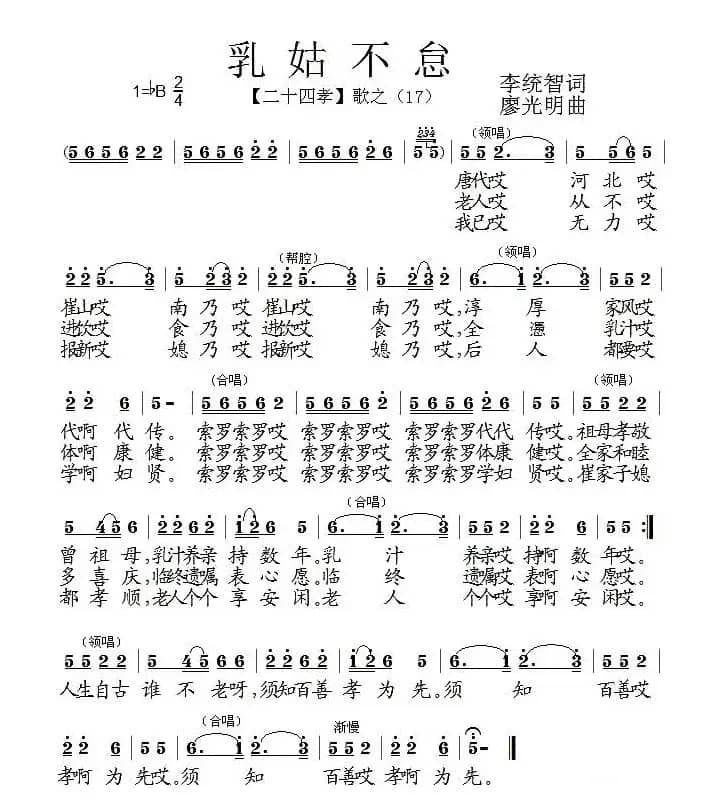 乳姑不怠
1=♭B 2/4
【二十四孝】歌之（17）
李统智词
廖光明曲
(5656 22 | 5656 22 | 5656 26 | 55) | 552. 3 | 5 56 5 |
（领唱）
唐代哎 河北哎
老人哎 从不哎
我已哎 无力哎
225. 3 | 5 23 2 | 225. 3 | 5 23 2 | 6. 1 2. 3 | 55 2 |
（帮腔） （领唱）
崔山哎 南乃哎 崔山哎 南乃哎,淳厚 家风哎
进饮哎 食乃哎 进饮哎 食乃哎,全凭 乳汁哎
报新哎 媳乃哎 报新哎 媳乃哎,后人 都要哎
22 6 | 5– | 5656 2 | 5656 2 | 5656 26 | 55 | 5522 |
（合唱） （领唱）
代啊代传。索罗索罗哎 索罗索罗哎 索罗索罗代代 传哎。祖母孝敬
体啊康健。索罗索罗哎 索罗索罗哎 索罗索罗体康 健哎。全家和睦
学啊妇贤。索罗索罗哎 索罗索罗哎 索罗索罗学妇 贤哎。崔家子媳
5 45 6 | 2262 | 126 5 | 6. 1 2. 3 | 55 2 | 22 6 | 55 :‖
（合唱）
曾祖母,乳汁养亲 持数年。乳汁 养亲哎 持啊数年哎。
多喜庆,临终遗嘱 表心愿。临终 遗嘱哎 表啊心愿哎。
都孝顺,老人个个 享安闲。老人 个个哎 享啊安闲哎。
（领唱）
5522 | 5 45 66 | 2262 | 126 5 | 6. 1 2. 3 | 55 2 |
人生自古 谁不老呀,须知百善 孝为先。须知 百善哎
（合唱） 渐慢
22 6 | 55 | 6. 1 2. 3 | 55 2 | 22 6 | 5– ‖
孝啊为先哎。须知 百善哎 孝啊为先。